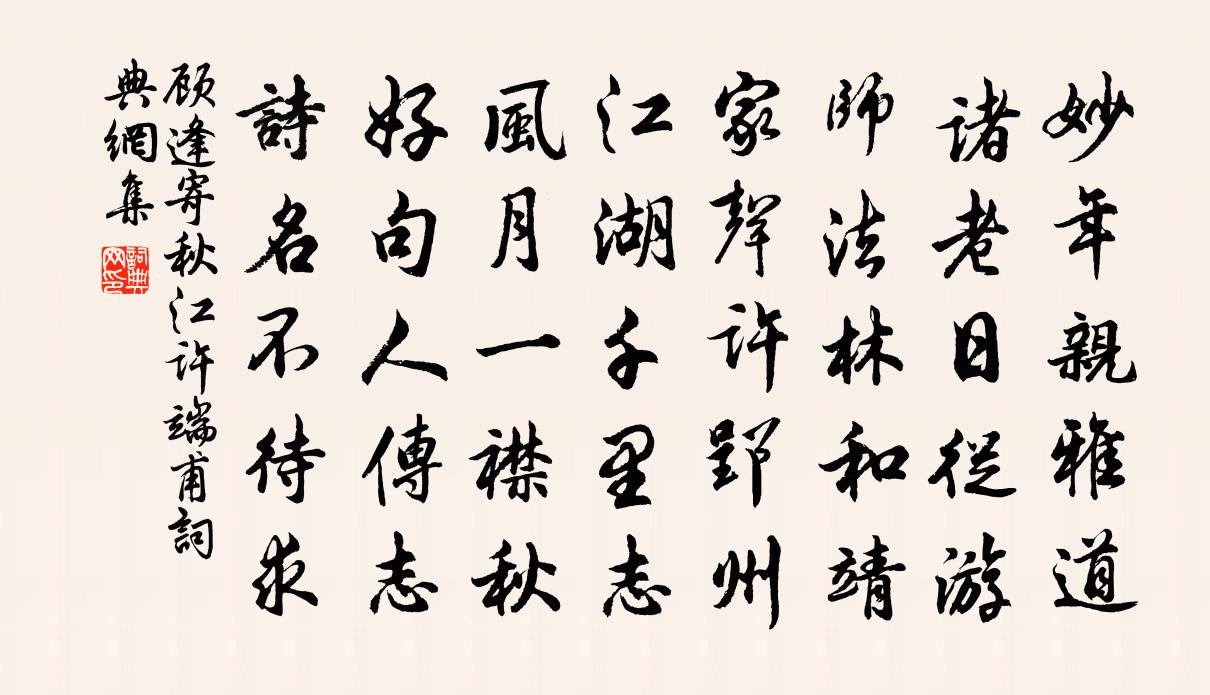 妙年親雅道
諸老日從游
師法林和靖
家聲許郢州
江湖千里志
風月一襟秋
好句人傳志
詩名不待求
顧逢寄秋江許端甫詞
典網集
詞典
网印